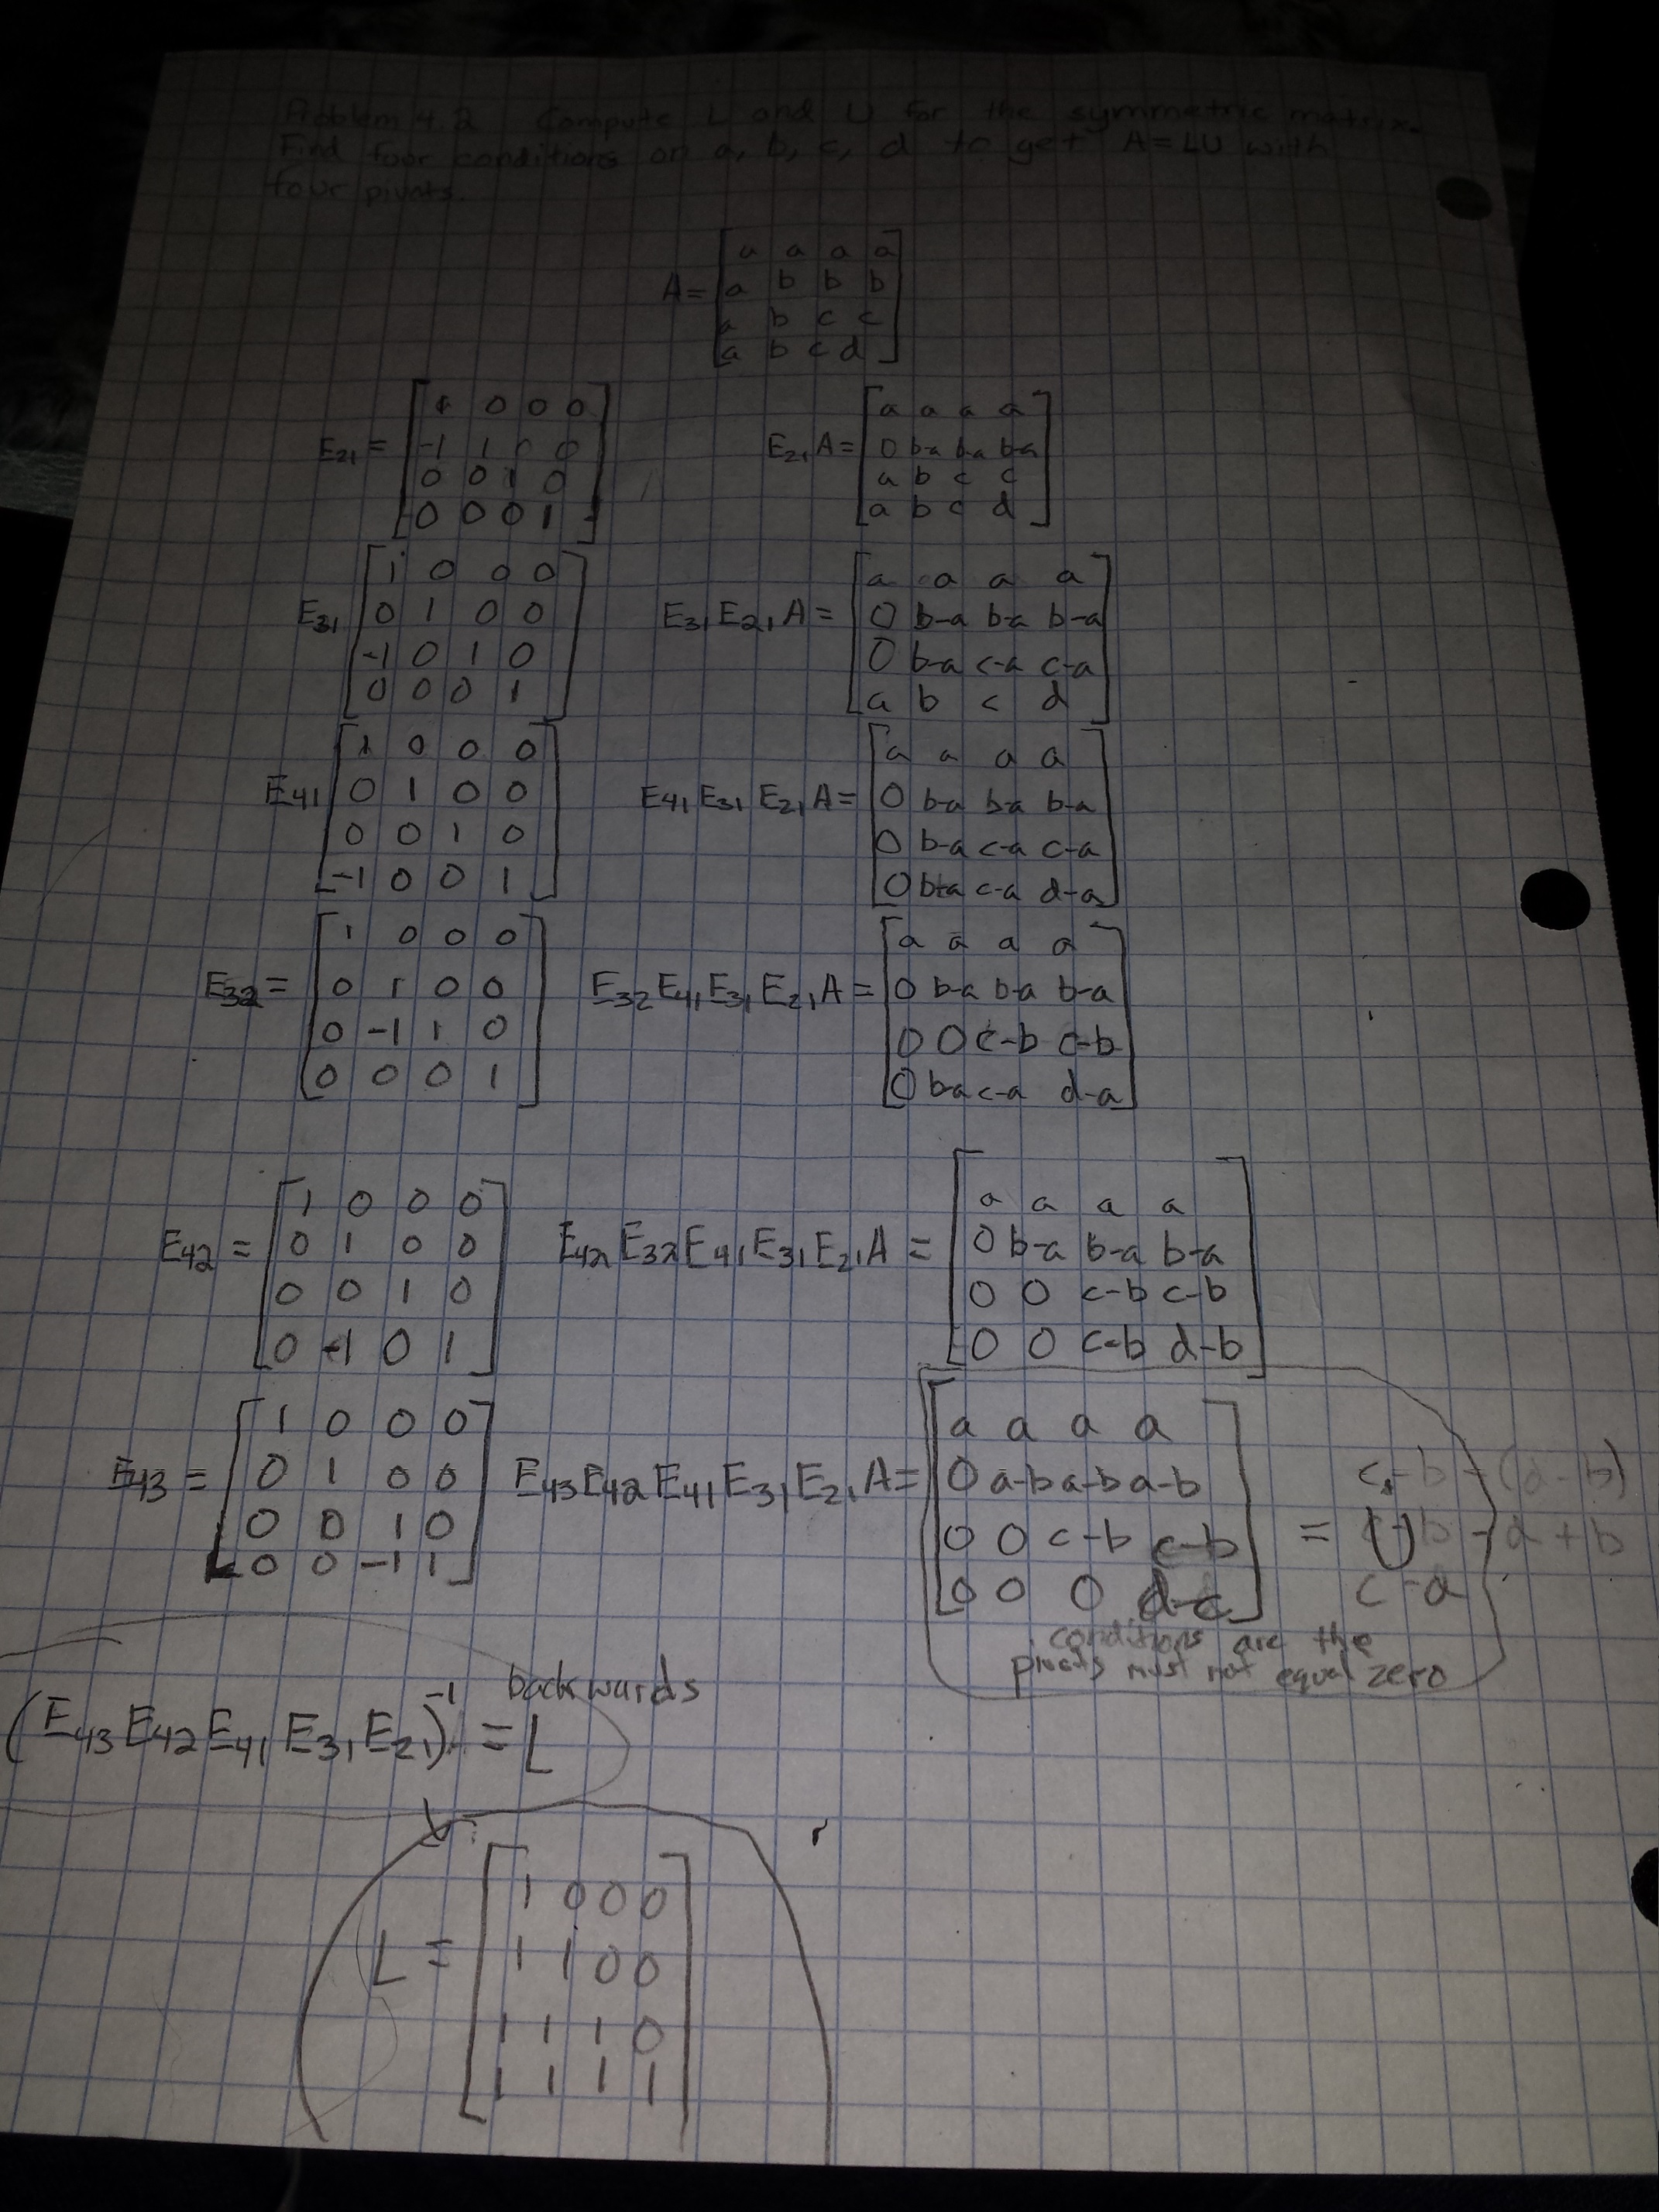 Problem 4.2 Compute L and U for the symmetric matrix.
Find four conditions on a, b, c, d to get A=LU with
four pivots.
A= [ a a a a
a b b b
a b c c
a b c d ]
E21 = [ 1 0 0 0
-1 1 0 0
0 0 1 0
0 0 0 1 ]
E21A= [ a a a a
0 b-a b-a b-a
a b c c
a b c d ]
E31 [ 1 0 0 0
0 1 0 0
-1 0 1 0
0 0 0 1 ]
E31E21A= [ a a a a
0 b-a b-a b-a
0 b-a c-a c-a
a b c d ]
E41 [ 1 0 0 0
0 1 0 0
0 0 1 0
-1 0 0 1 ]
E41E31E21A= [ a a a a
0 b-a b-a b-a
0 b-a c-a c-a
0 b-a c-a d-a ]
E32= [ 1 0 0 0
0 1 0 0
0 -1 1 0
0 0 0 1 ]
E32E41E31E21A= [ a a a a
0 b-a b-a b-a
0 0 c-b c-b
0 b-a c-a d-a ]
E42 = [ 1 0 0 0
0 1 0 0
0 0 1 0
0 -1 0 1 ]
E42E32E41E31E21A = [ a a a a
0 b-a b-a b-a
0 0 c-b c-b
0 0 c-b d-b ]
E43 = [ 1 0 0 0
0 1 0 0
0 0 1 0
0 0 -1 1 ]
E43E42E41E31E21A= [ a a a a
0 a-b a-b a-b
0 0 c-b c-b
0 0 0 d-c ] = U
conditions are the
pivots must not equal zero
(E43E42E41E31E21)-1 = L
backwards
L = [ 1 0 0 0
1 1 0 0
1 1 1 0
1 1 1 1 ]